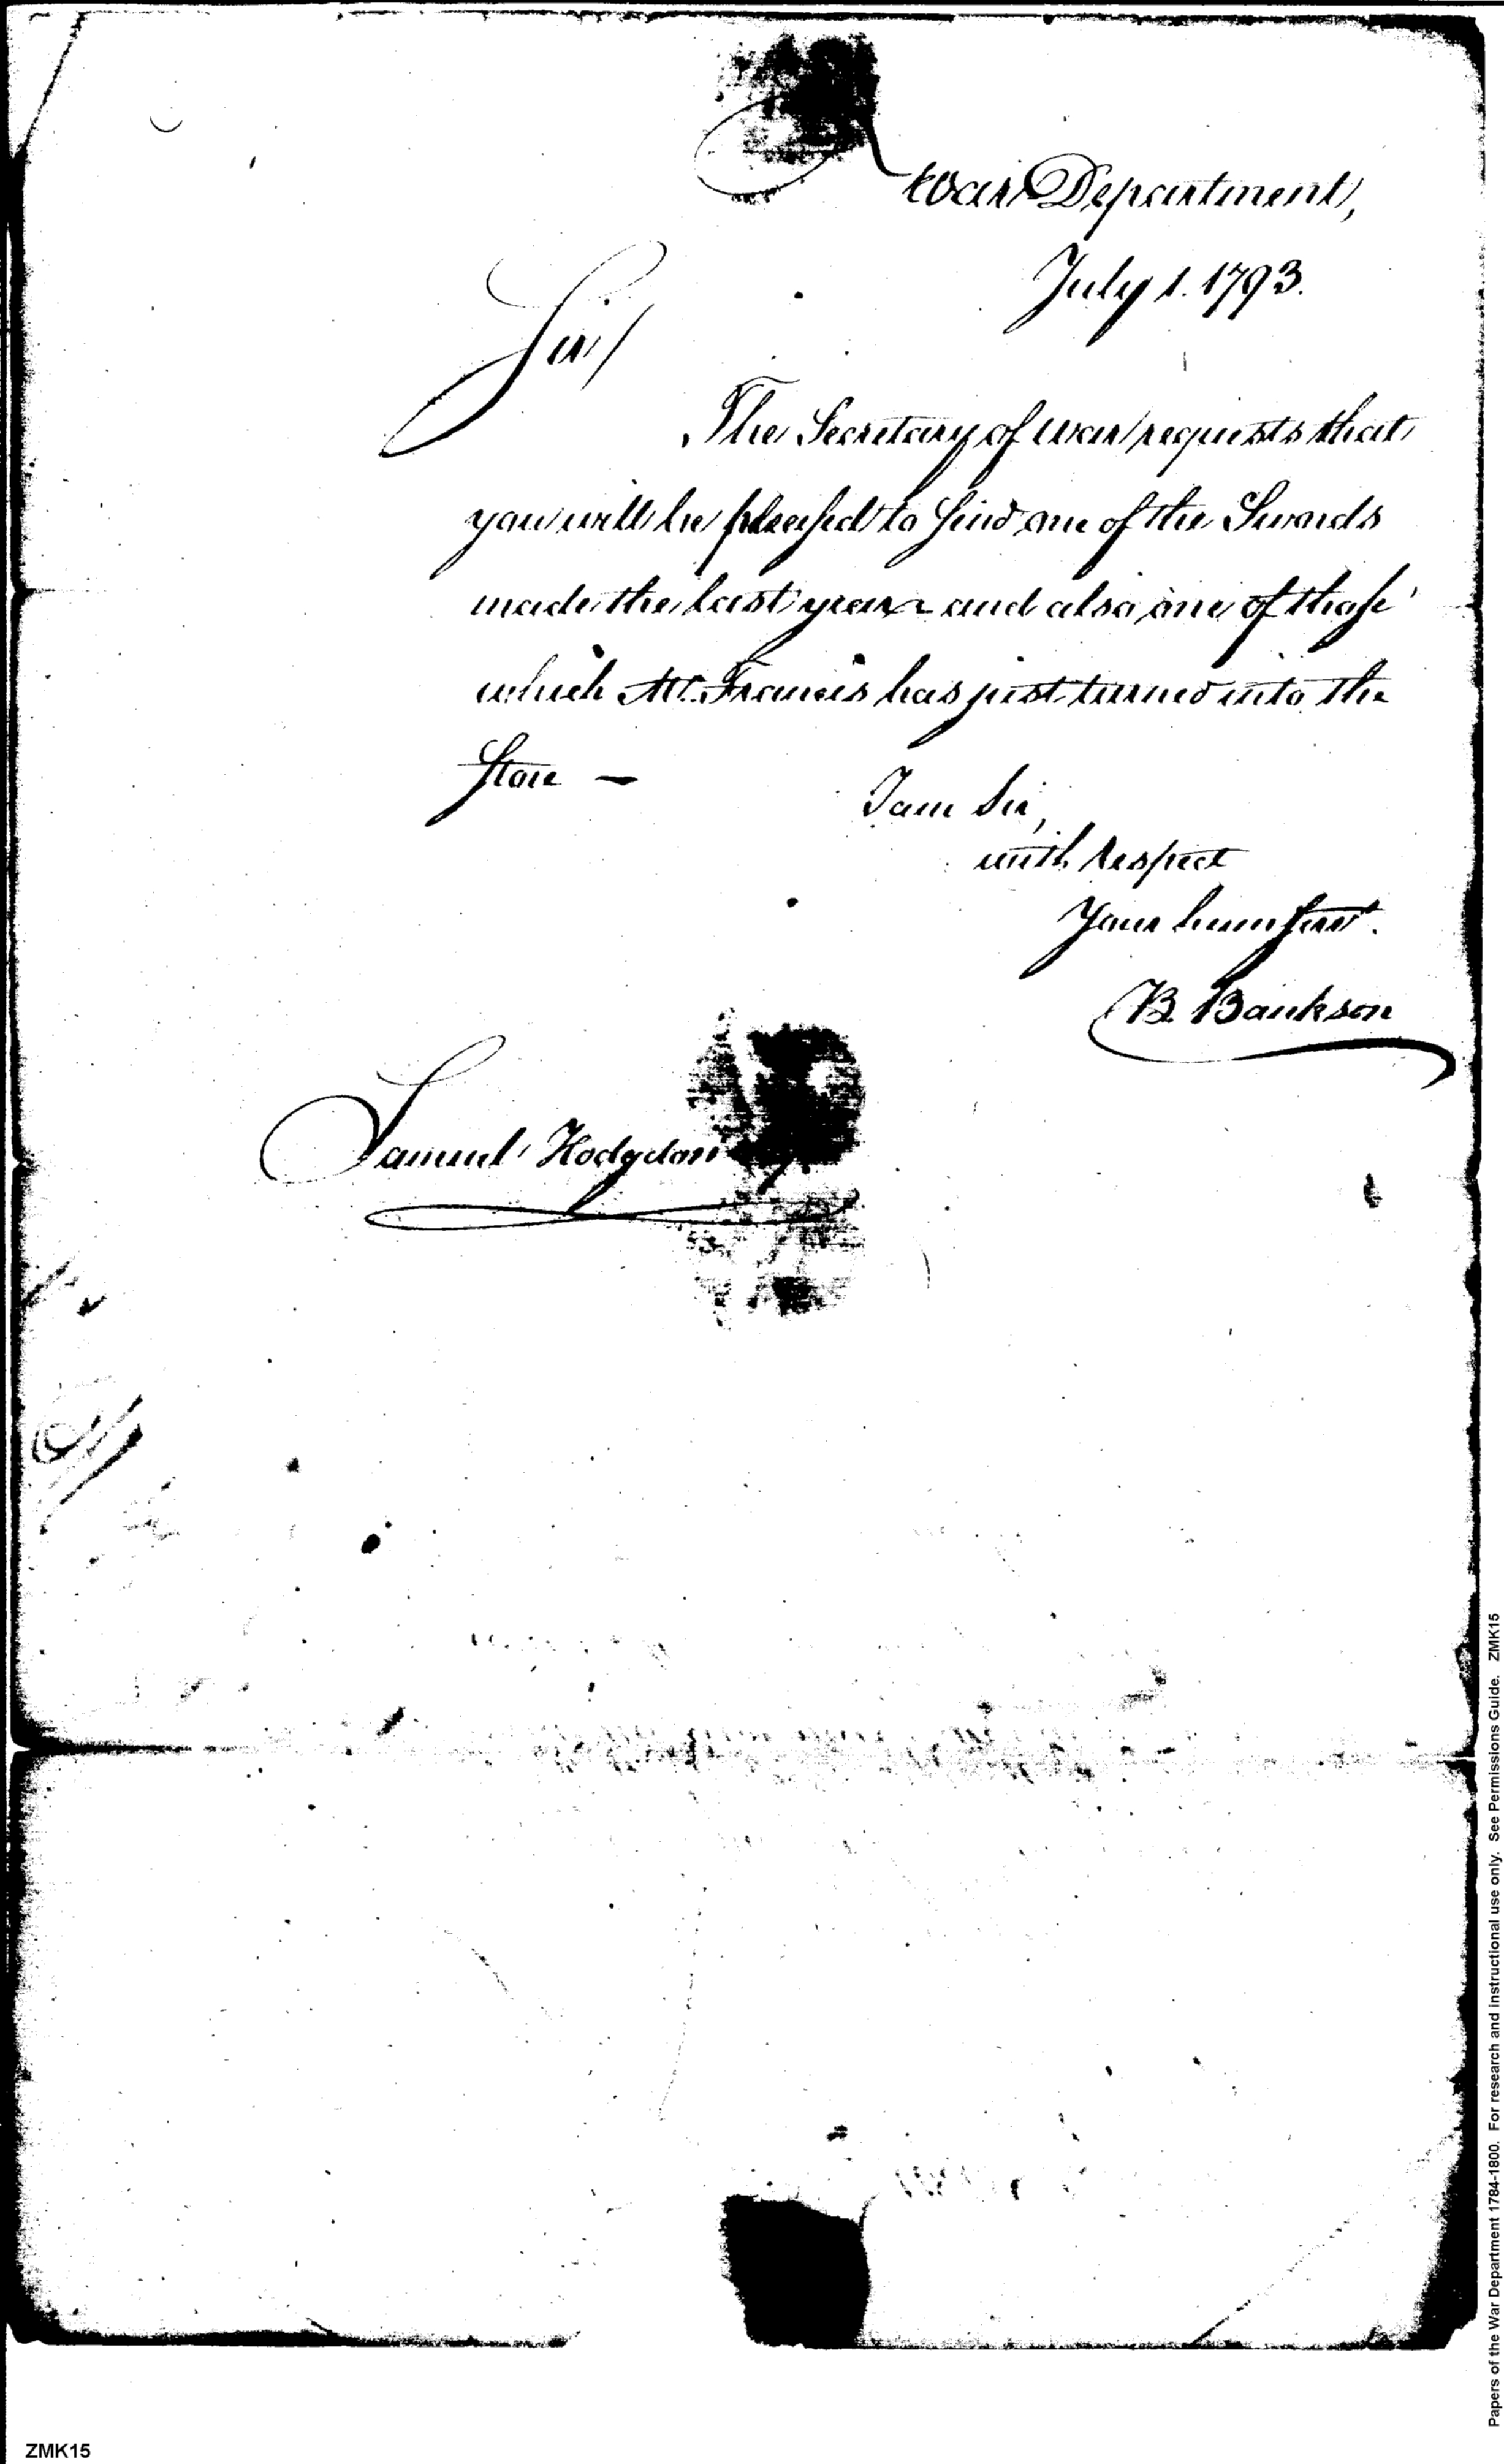 War Department,
July 1. 1793.
Sir/
The Secretary of war requests that
you will be pleased to send one of the Swords
made the last year and also one of those
which Mr. Francis has just turned into the
Store —
I am Sir,
with respect
Your hum servt.
B. Bankson
Samuel Hodgdon
Papers of the War Department 1784-1800. For research and instructional use only. See Permissions Guide. ZMK15
ZMK15